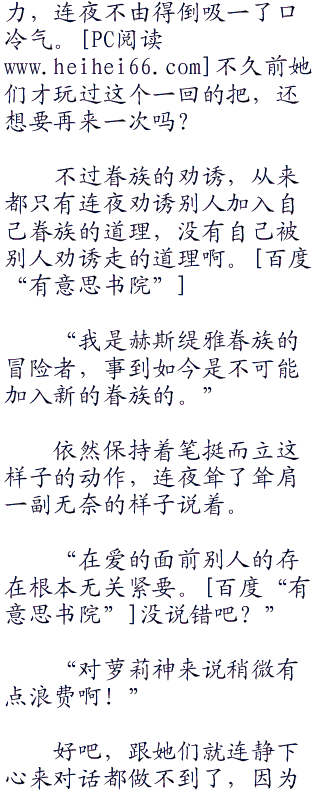 力，连夜不由得倒吸一了口
冷气。[PC阅读
www.heihei66.com]不久前她
们才玩过这个一回的把，还
想要再来一次吗？
不过眷族的劝诱，从来
都只有连夜劝诱别人加入自
己眷族的道理，没有自己被
别人劝诱走的道理啊。[百度
“有意思书院”]
“我是赫斯缇雅眷族的
冒险者，事到如今是不可能
加入新的眷族的。”
依然保持着笔挺而立这
样子的动作，连夜耸了耸肩
一副无奈的样子说着。
“在爱的面前别人的存
在根本无关紧要。[百度“有
意思书院”]没说错吧？”
“对萝莉神来说稍微有
点浪费啊！”
好吧，跟她们就连静下
心来对话都做不到了，因为